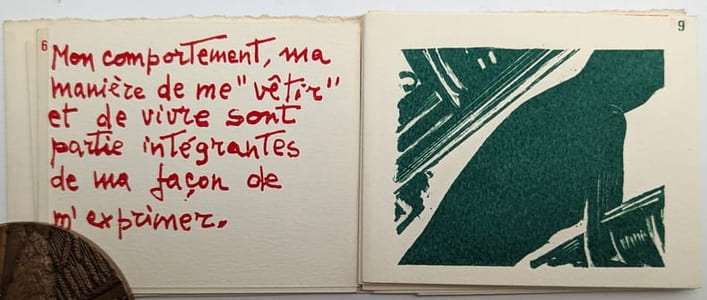 6
Mon comportement, ma
manière de me "vêtir"
et de vivre sont
partie intégrantes
de ma façon de
m'exprimer.
9